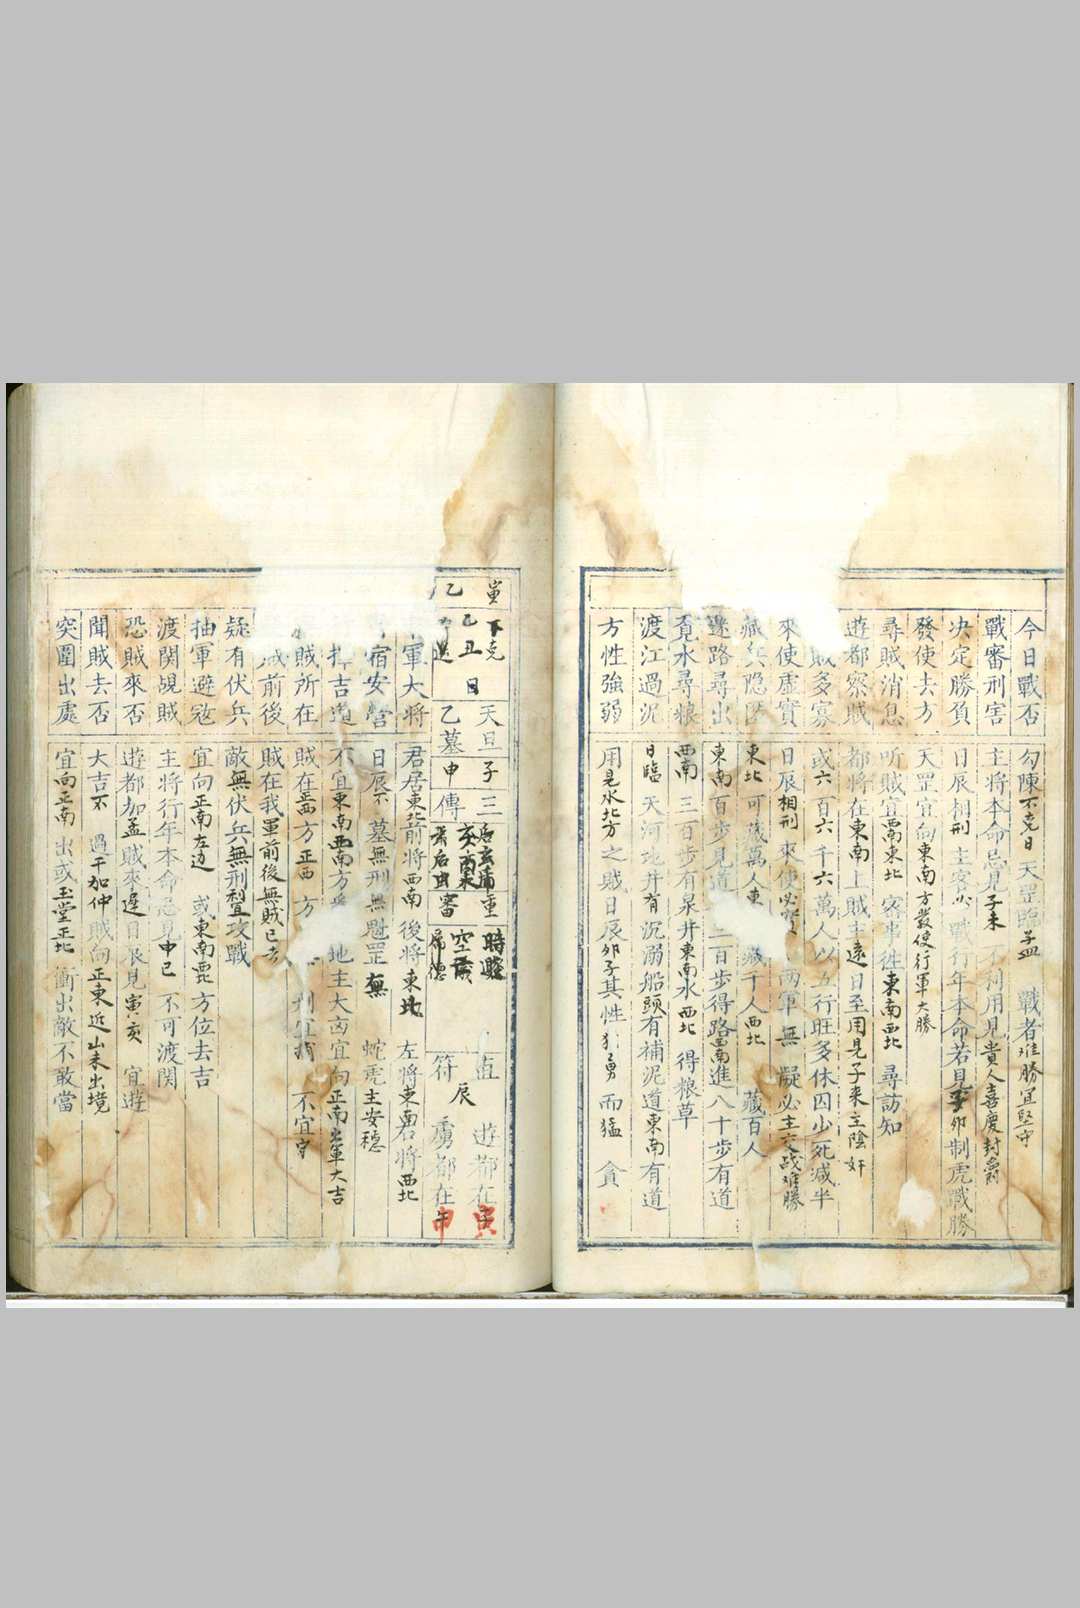 今日戰否 勾陳不克日天罡臨孟 戰者难勝宜堅守
戰審刑害 主將本命忌見子未 不利用見貴人喜慶封爵
决定勝負 日辰相刑主客 戰行年本命若見 卯制虎戰勝
發使去方 天罡宜向東南方發使行軍大勝
尋賊消息 听賊宜西南東北 客事徃東南西北 尋訪知
遊都察賊 都將在東南上賊主遠日至用見子来主陰奸
賊多寡 或六百六千六萬人以五行旺多休囚少死减半
來使虛實 日辰相刑來使必 兩軍無 疑必主交战难勝
藏兵隐 東北可藏萬人東 藏千人西北 藏百人
迷路尋出 東南百步見道 二百步得路西南進八十步有道
覔水尋粮 西南三百步有泉井東南水西北 得粮草
渡江過泥 日臨天河地井有沉溺船頭有補泥道東南有道
方性強弱 用是水北方之賊日辰卯子其性 勇而猛 貪
寅 下克 天 子 三 重 時 直 遊都在 寅
乙 乙丑日 日 亥 空 辰
乙墓申傳 審 符 虜都在 申
軍大將 君居東北前將西南後將東北 左將東南右將西北
宿安營 日辰不墓無刑無魁罡無 蛇虎主安穩
吉道 不宜東南西南方 地主大凶宜向正南出軍大吉
賊所在 賊在 西方正西方 不宜守
前後 賊在我軍前後無賊已去
疑有伏兵 敵無伏兵無刑 攻戰
抽軍避寇 宜向正南左边 或東南 方位去吉
渡関覘賊 主將行年本命忌見申巳 不可渡関
恐賊來否 遊都加孟賊來遲日辰見寅亥 宜避
聞賊去否 大吉不過干加仲賊向正東近山未出境
突圍出處 宜向正南 出或玉堂正北 衝出敵不敢當